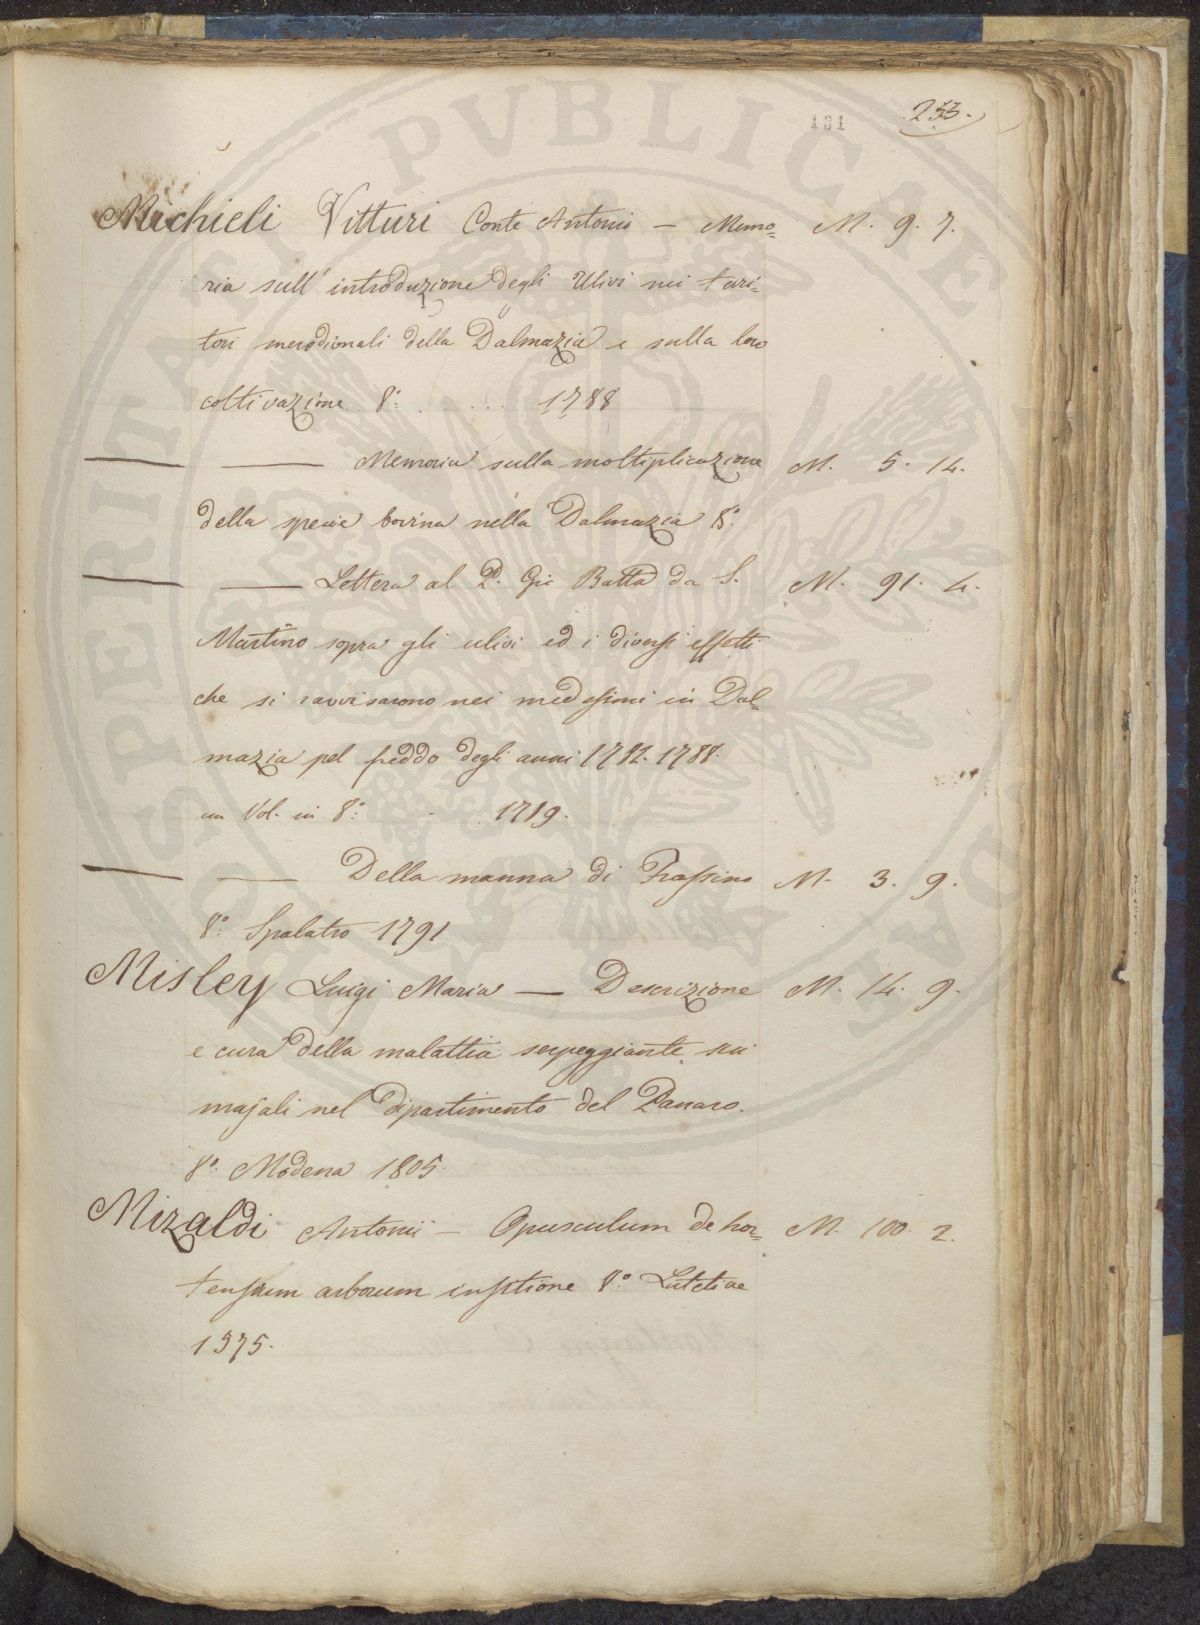 131 233.
Michieli Vitturi Conte Antonio — Memo= M. 9. 7.
ria sull' introduzione degli Ulivi nei teri=
tori merodionali della Dalmazia e sulla loro
coltivazione 8.° 1788
— — Memoria sulla moltiplicazione M. 5. 14.
della specie bovina nella Dalmazia 8.°
— — Lettera al P. Gio Batta da S. M. 91. 4.
Martino sopra gli ulivi ed i diversi effetti
che si ravvisarono nei medesimi in Dal=
mazia pel freddo degli anni 1782. 1788.
un Vol. in 8.° 1789.
— — Della manna di Frassino M. 3. 9.
8.° Spalatro 1791
Misley Luigi Maria — Descrizione M. 14. 9.
e cura della malattia serpeggiante sui
majali nel Dipartimento del Panaro.
8.° Modena 1805.
Mizaldi Antonii — Opusculum de hor= M. 100. 2.
tensium arborum insitione 8.° Lutetiae
1575.
PROSPERITATI PVBLICAE